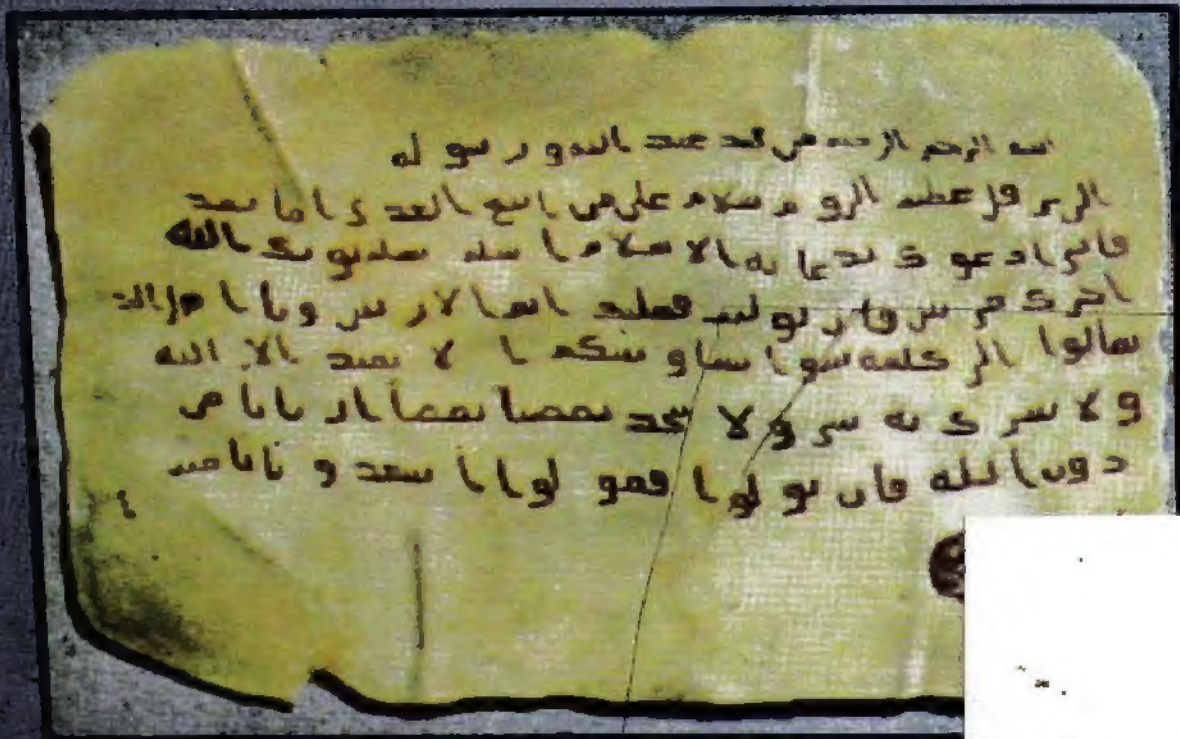 بسم الله الرحمن الرحيم من محمد عبد الله ورسوله
الى هرقل عظيم الروم سلام على من اتبع الهدى اما بعد
فانى ادعوك بدعاية الاسلام اسلم تسلم يوتك الله
اجرك مرتين فان توليت فعليك اثم الاريسين ويا اهل الكتب
تعالوا الى كلمة سوا بيننا وبينكم الا نعبد الا الله
ولا نشرك به شيا ولا يتخذ بعضنا بعضا اربابا من
دون الله فان تولوا فقولوا اشهدوا بانا مسلمون